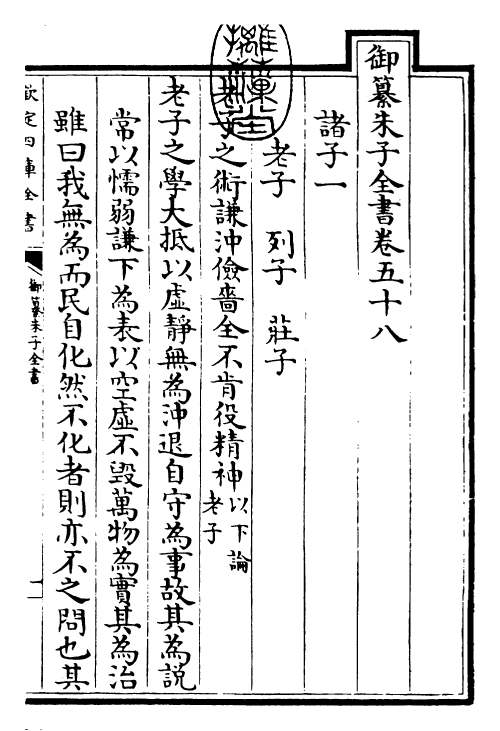 御纂朱子全書卷五十八
諸子一
老子 列子 莊子
老子之術謙沖儉嗇全不肯役精神以下論老子
老子之學大抵以虛靜無為沖退自守為事故其為說
常以懦弱謙下為表以空虛不毀萬物為實其為治
雖曰我無為而民自化然不化者則亦不之問也其
欽定四庫全書
御纂朱子全書
一